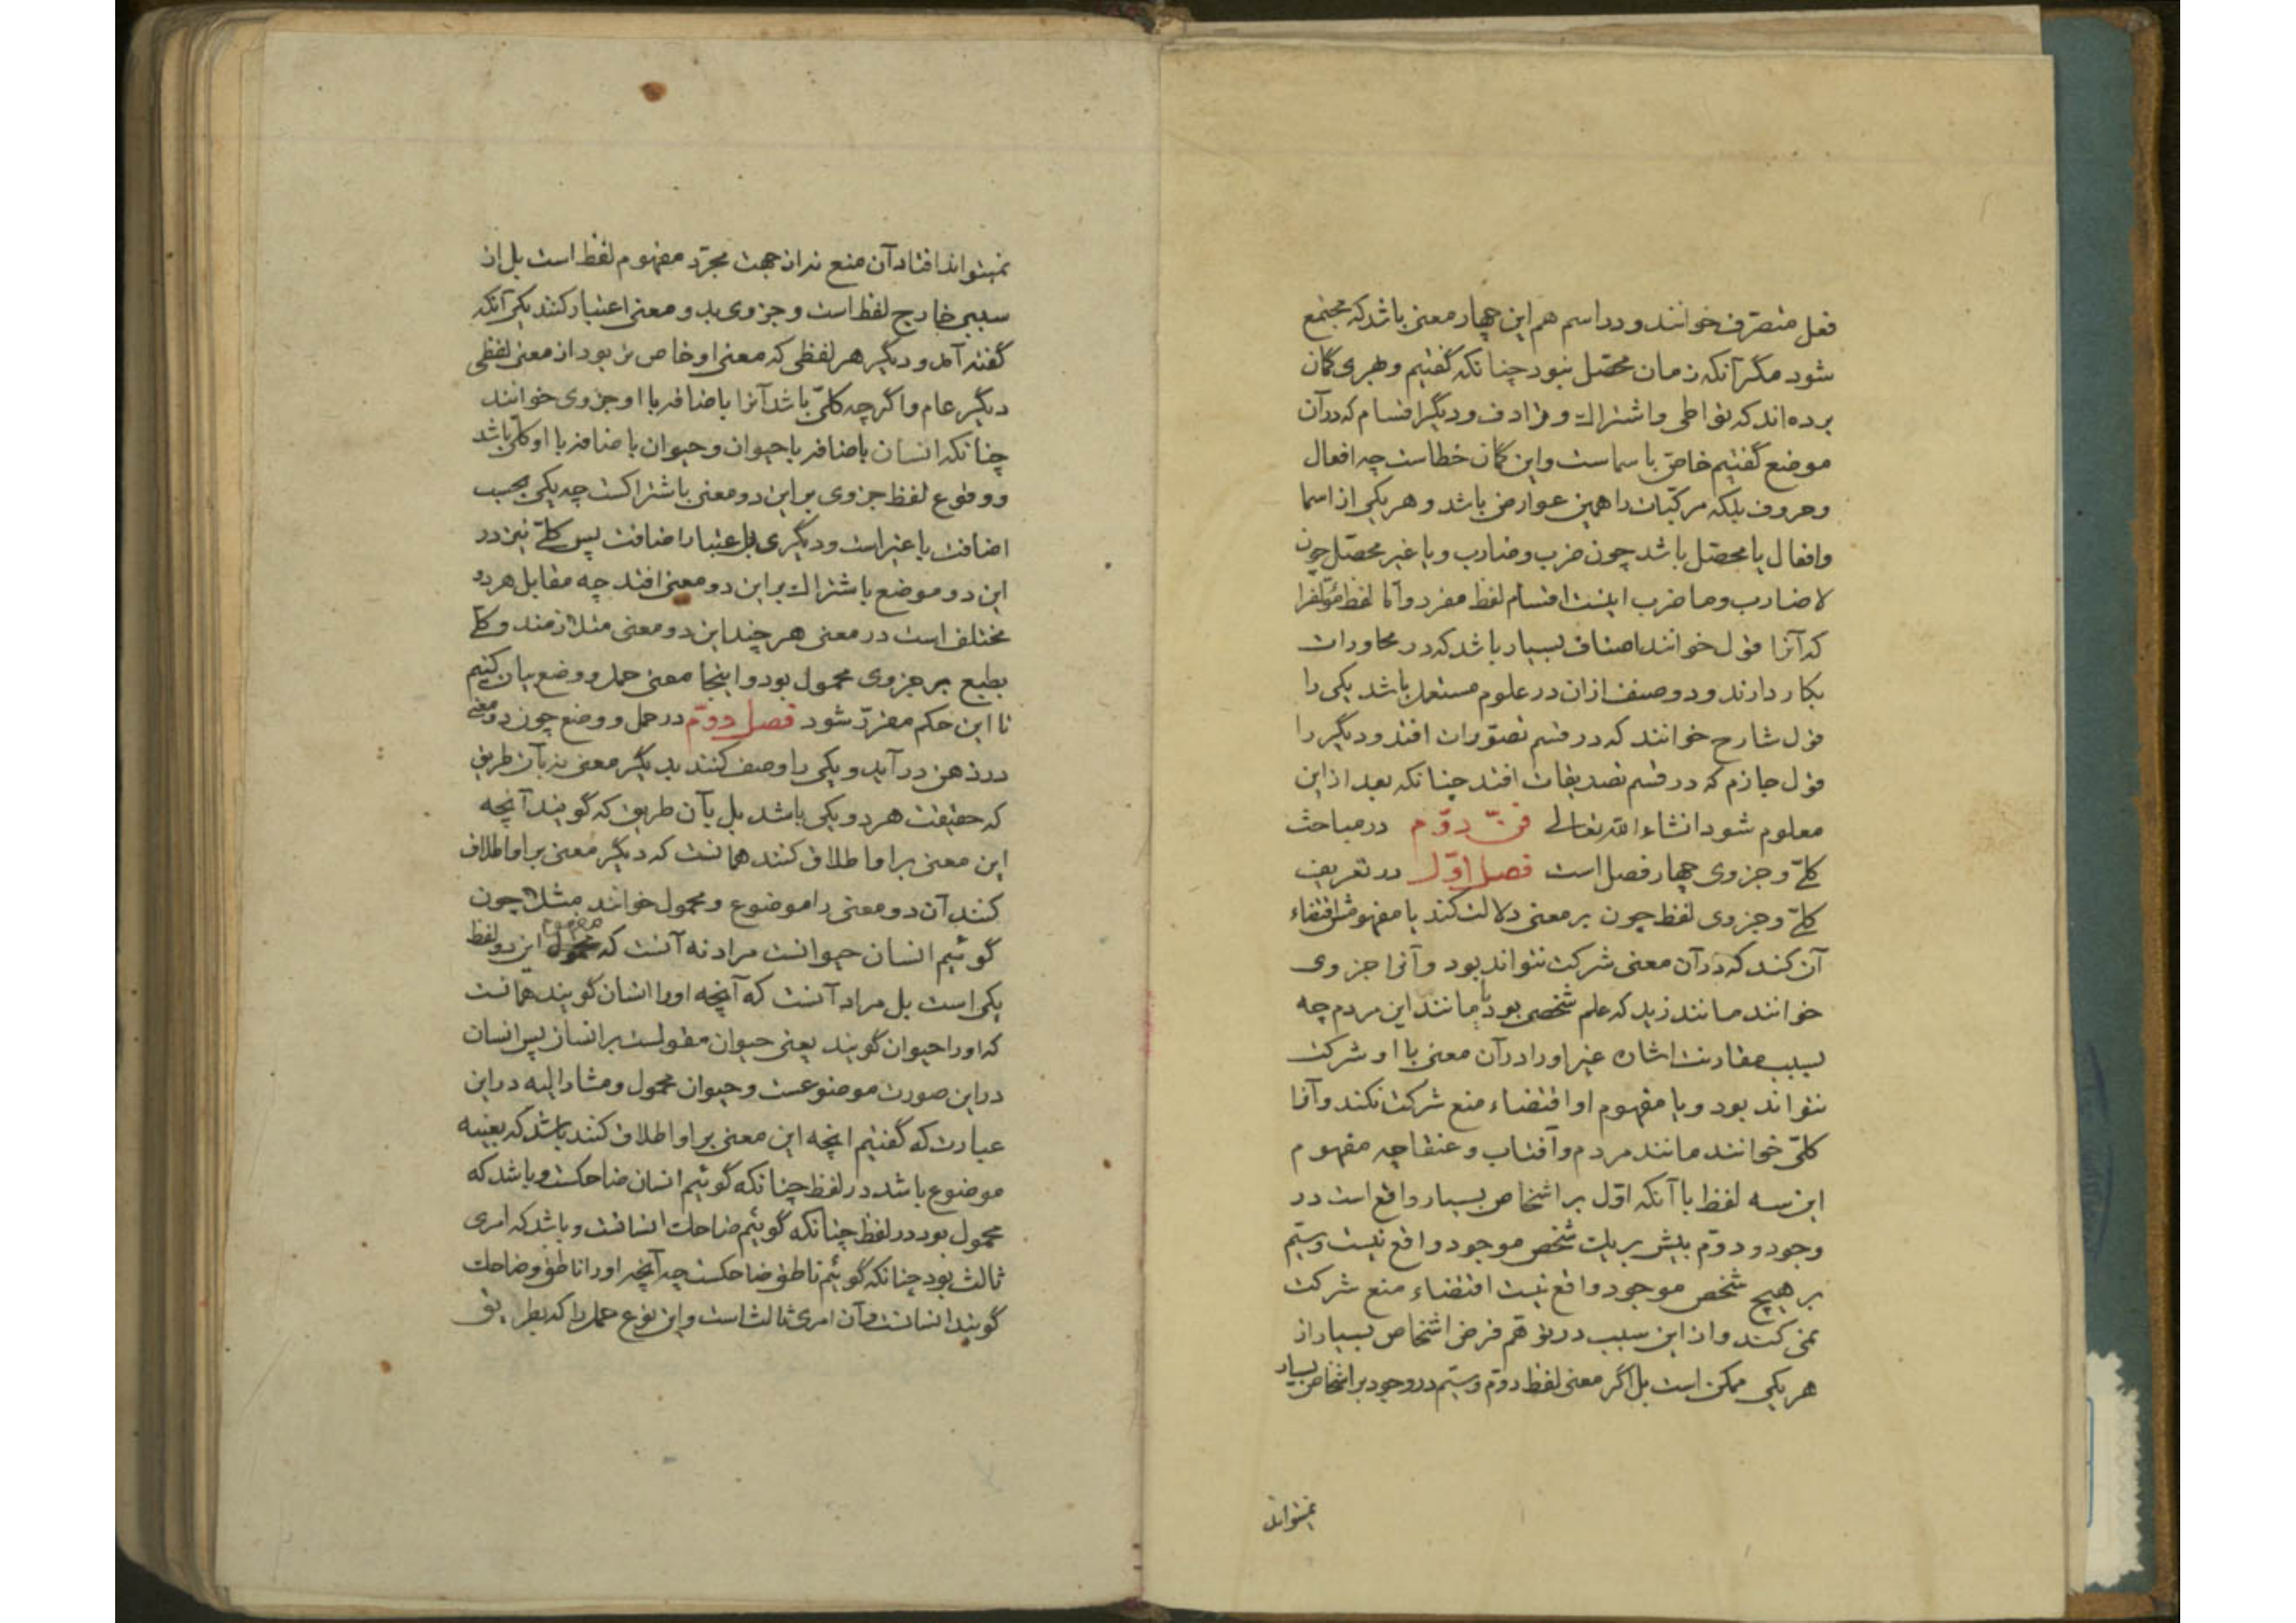 فعل متصرّف خوانند و در اسم هم این چهار معنی باشد که مجتمع
شود مگر آنکه زمان محصّل نبود چنانکه گفتیم و طبری گمان
برده‌اند که تواطی و اشتراک و ترادف و دیگر اقسام که در آن
موضع گفتیم خاصّ باسماست و این گمان خطاست چه افعال
و حروف بلکه مرکّبات را همین عوارض باشد و هر یکی از اسما
و افعال یا محصّل باشد چون ضرب و ضارب و یا غیر محصّل چون
لا ضارب و ما ضرب اینست اقسام لفظ مفرد و امّا لفظ مؤلّف را
که آنرا قول خوانند اصناف بسیار باشد که در محاورات
بکار دارند و دو صنف ازان در علوم مستعمل باشد یکی را
قول شارح خوانند که در قسم تصوّرات افتد و دیگر را
قول جازم که در قسم تصدیقات افتد چنانکه بعد از این
معلوم شود انشاء الله تعالی فنّ دوّم در مباحث
کلّی و جزوی چهار فصل است فصل اوّل در تعریف
کلّی و جزوی لفظ چون بر معنی دلالت کند یا مفهومش اقتضاء
آن کند که در آن معنی شرکت نتواند بود و آنرا جزوی
خوانند مانند زید که علم شخصی بود یا مانند این مردم چه
بسبب مقارنت اشاره غیر او را در آن معنی با او شرکت
نتواند بود و یا مفهوم او اقتضاء منع شرکت نکند و آنرا
کلّی خوانند مانند مردم و آفتاب و عنقا چه مفهوم
این سه لفظ با آنکه اوّل بر اشخاص بسیار واقع است در
وجود و دوّم بیش بر یک شخص موجود واقع نیست و سیّم
بر هیچ شخص موجود واقع نیست اقتضاء منع شرکت
نمی کند و از این سبب در توهّم فرض اشخاص بسیار از
هر یکی ممکن است بل اگر معنی لفظ دوّم و سیّم در وجود بر اشخاص بسیار
نمیتواند
نمیتواند افتاد آن منع نه از جهت مجرّد مفهوم لفظ است بل از
سببی خارج لفظ است و جزوی بدو معنی اعتبار کنند یکی آنکه
گفته آمد و دیگر هر لفظی که معنی او خاص تر بود از معنی لفظی
دیگر عام و اگرچه کلّی باشد آنرا باضافه با او جزوی خوانند
چنانکه انسان باضافه با حیوان و حیوان باضافه با او کلّی باشد
و وقوع لفظ جزوی بر این دو معنی باشتراکست چه یکی بحسب
اضافت با غیر است و دیگری بل اعتبار اضافت پس کلّی نیز در
این دو موضع باشتراک بر این دو معنی افتد چه مقابل هر دو
مختلف است در معنی هر چند این دو معنی متلازمند و کلّی
بطبع بر جزوی محمول بود و اینجا معنی حمل و وضع بیان کنیم
تا این حکم مقرّر شود فصل دوّم در حمل و وضع چون دو معنی
در ذهن در آید و یکی را وصف کنند بدیگر معنی نه بآن طریق
که حقیقت هر دو یکی باشد بل بآن طریق که گویند آنچه
این معنی بر او اطلاق کنند همانست که دیگر معنی بر او اطلاق
کنند آن دو معنی را موضوع و محمول خوانند مثلا چون
گوئیم انسان حیوانست مراد نه آنست که مفهوم این دو لفظ
یکی است بل مراد آنست که آنچه او را انسان گویند همانست
که او را حیوان گویند یعنی حیوان مقولست بر انسان پس انسان
در این صورت موضوعست و حیوان محمول و مشار الیه در این
عبارت که گفتیم انچه این معنی بر او اطلاق کنند باشد که بعینه
موضوع باشد در لفظ چنانکه گوئیم انسان ضاحکست و باشد که
محمول بود در لفظ چنانکه گوئیم ضاحک انسانست و باشد که امری
ثالث بود چنانکه گوئیم ناطق ضاحکست چه آنچه او را ناطق و ضاحک
گویند انسانست و آن امری ثالث است و این نوع حمل را که بطریق